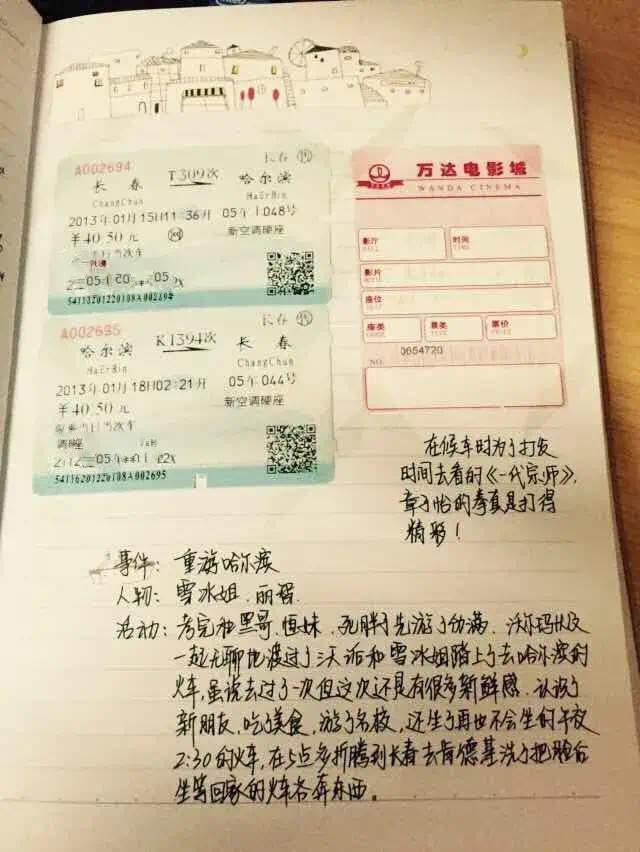 A002694
长春
长春
T309次
哈尔滨
ChangChun
HaErBin
2013年01月15日11:36开
05车048号
￥40.50元
新空调硬座
54113201220108A002694
A002695
长春
哈尔滨
K1394次
长春
HaErBin
ChangChun
2013年01月18日02:21开
05车044号
￥40.50元
新空调硬座
54116201220108A002695
万达电影城
WANDA CINEMA
影厅
时间
TIME
影片
座位
座类
票类
票价
NO.
0654720
在候车时为了打发
时间去看的《一代宗师》,
章子怡的拳真是打得
精彩!
事件: 重游哈尔滨
人物: 雪冰姐、丽智.
活动: 考完和黑哥、恒妹、死胖子先游了伪满、沃尔玛以及
一起无聊地渡过了三天后和雪冰姐踏上了去哈尔滨的
火车,虽说去过了一次但这次还是有很多新鲜感.认识了
新朋友,吃了美食,游了名校,还坐了再也不会坐的午夜
2:30的火车,在5点多折腾到长春去肯德基洗了把脸后
坐等回家的火车各奔东西。